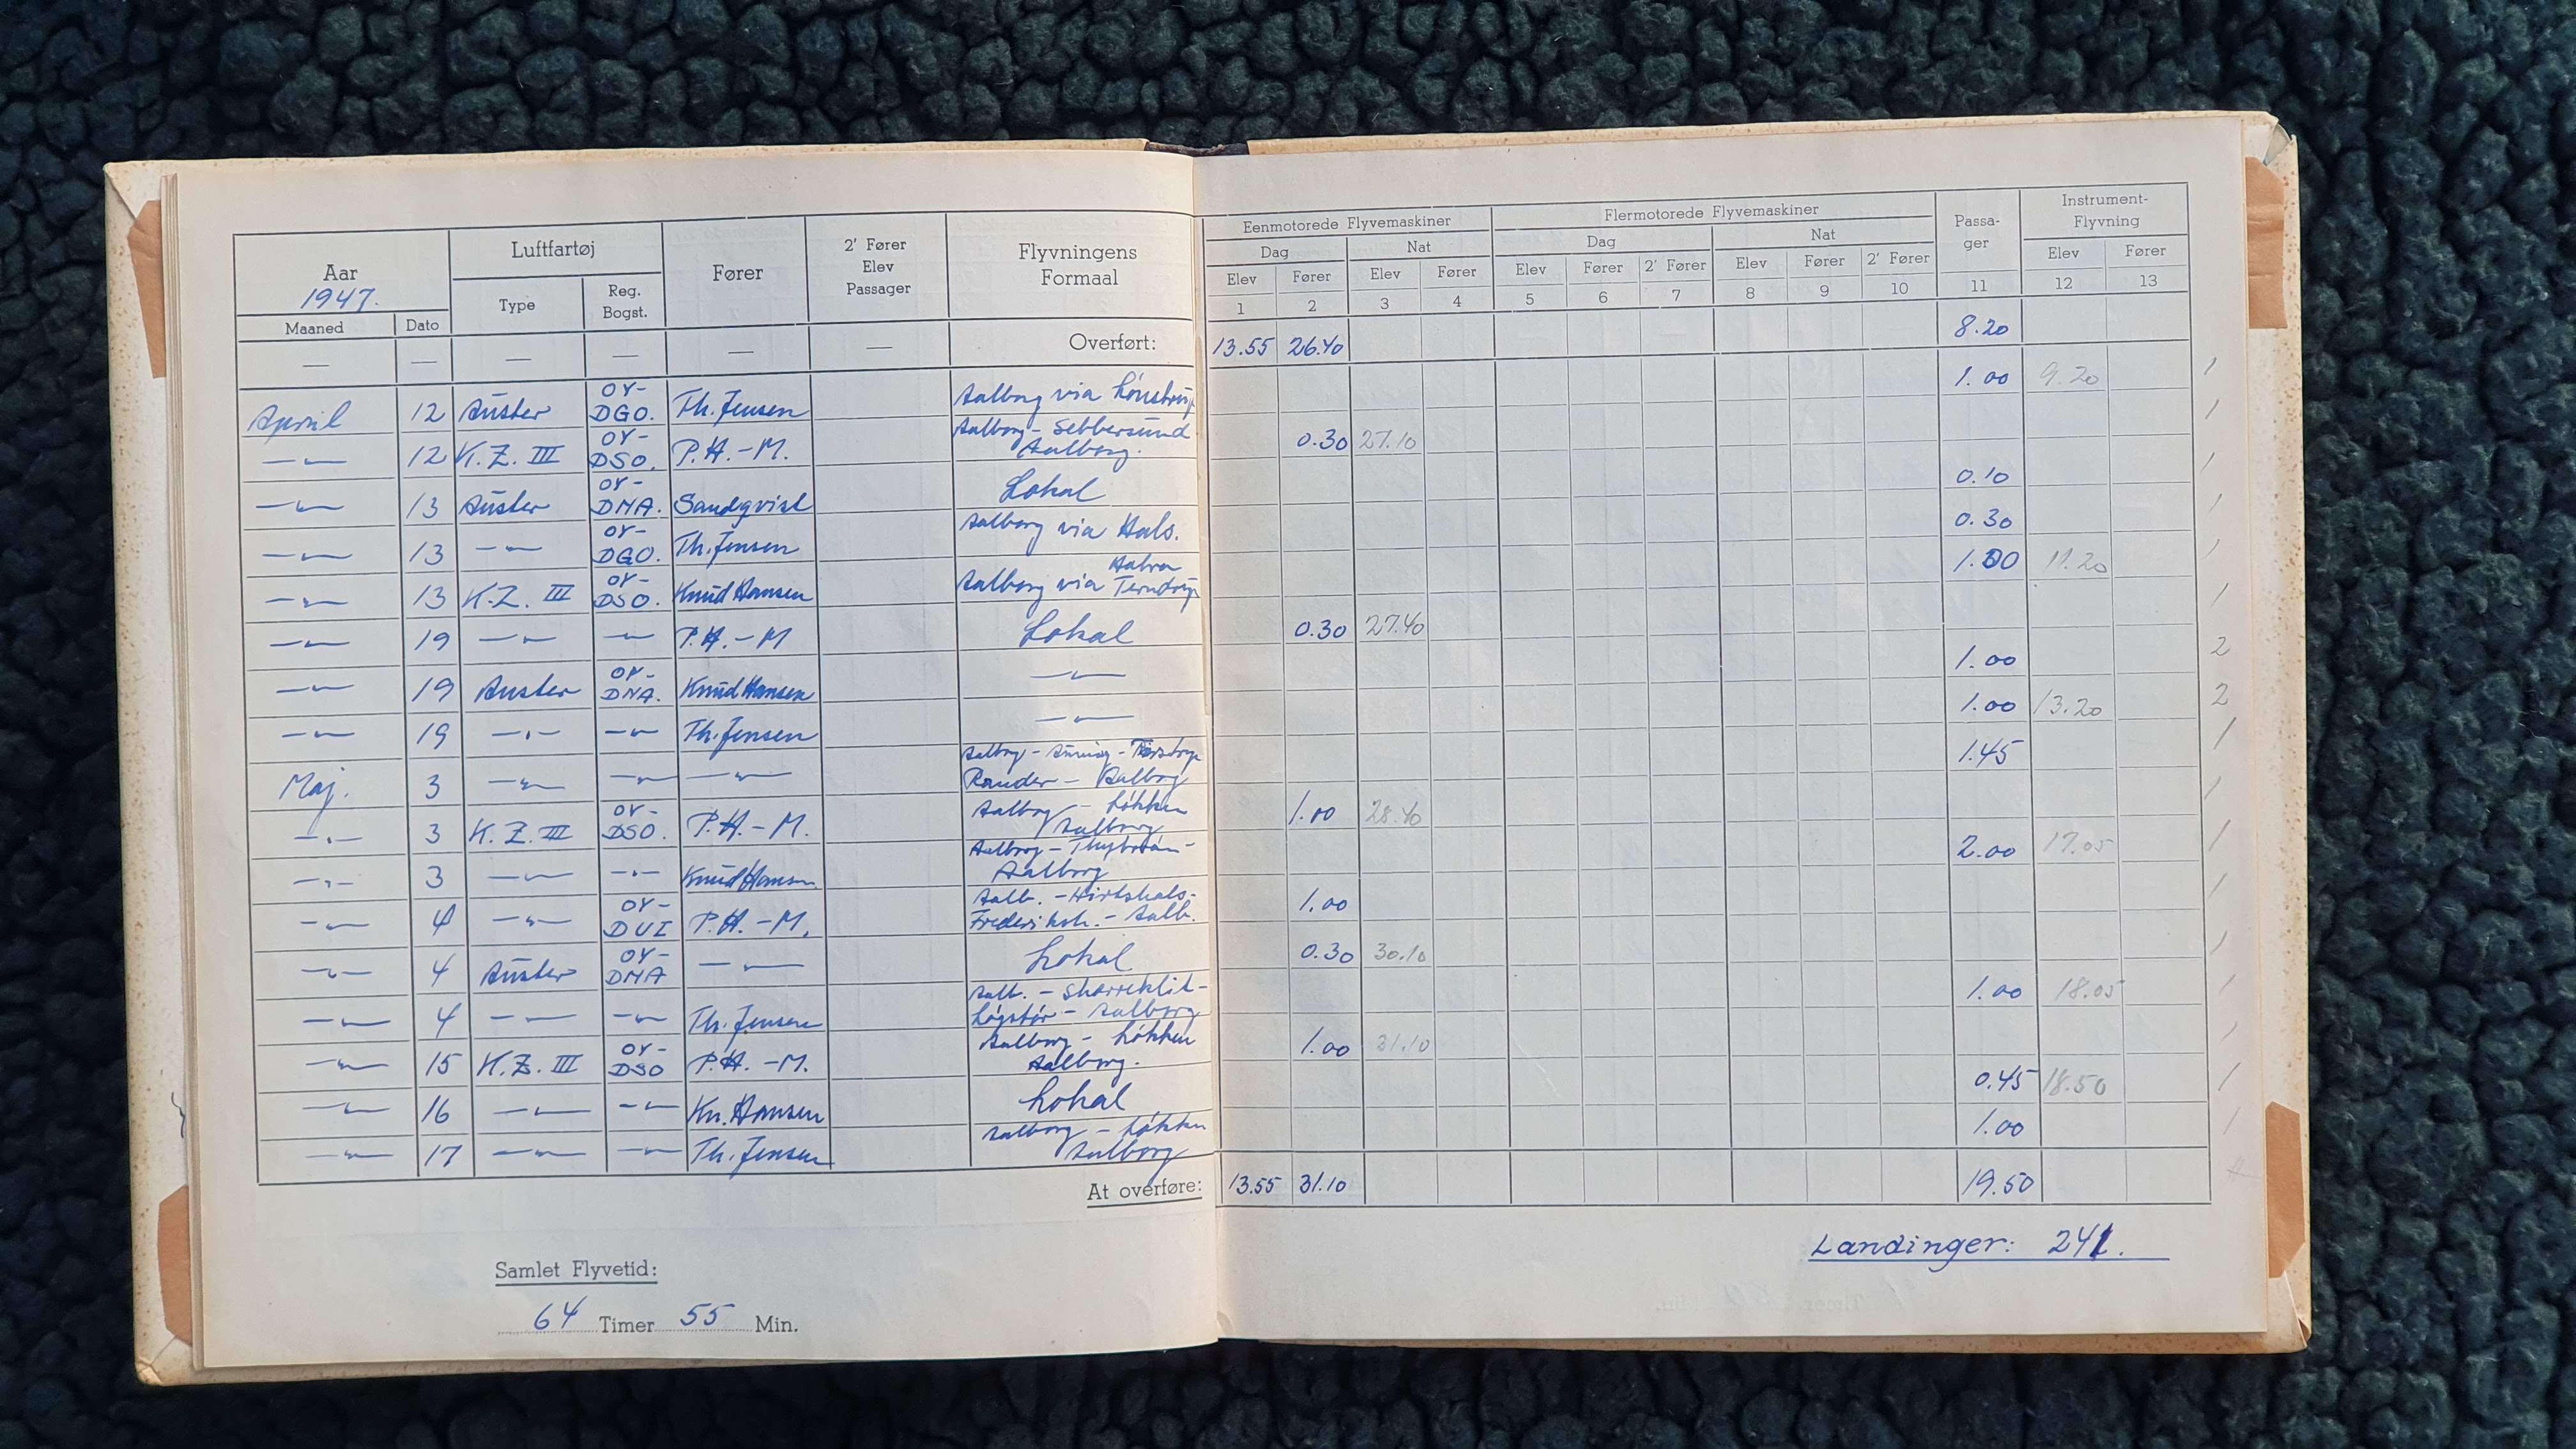 Aar
1947.
Maaned Dato
Luftfartøj
Type
Reg. Bogst.
Fører
2' Fører
Elev
Passager
Flyvningens
Formaal
Eenmotorede Flyvemaskiner
Dag Nat
Elev Fører Elev Fører
1 2 3 4
Flermotorede Flyvemaskiner
Dag Nat
Elev Fører 2' Fører Elev Fører 2' Fører
5 6 7 8 9 10
Passa-
ger
11
Instrument-
Flyvning
Elev Fører
12 13
— — — — — — Overført: 13.55 26.40 8.20
April 12 Auster OY-DGO. Th. Jensen Aalborg via Lønstrup 1.00 9.20 1
—"— 12 K.Z. III OY-DSO. P.H.-M. Aalborg - Sebbersund Aalborg. 0.30 27.10 1
—"— 13 Auster OY-DNA. Sandqvist Lokal 0.10 1
—"— 13 —"— OY-DGO. Th. Jensen Aalborg via Hals. 0.30 1
—"— 13 K.Z. III OY-DSO. Knud Hansen Aalborg via Terndrup 1.00 11.20 1
—"— 19 —"— —"— P.H.-M Lokal 0.30 27.40 1
—"— 19 Auster OY-DNA. Knud Hansen —"— 1.00 2
—"— 19 —"— —"— Th. Jensen —"— 1.00 13.20 2
Maj. 3 —"— —"— —"— Aalborg - Tirstrup Rander - Aalborg 1.45 1
—"— 3 K.Z. III OY-DSO. P.H.-M. Aalborg - Løkken Aalborg 1.00 28.40 1
—"— 3 —"— —"— Knud Hansen Aalborg - Thyborøn - Aalborg 2.00 17.05 1
—"— 4 —"— OY-DUI P.H.-M. Aalb. - Hirtshals - Frederiksh. - Aalb. 1.00 1
—"— 4 Auster OY-DNA —"— Lokal 0.30 30.10 1
—"— 4 —"— —"— Th. Jensen Aalb. - Skarreklit - Løgstør - Aalborg 1.00 18.05 1
—"— 15 K.Z. III OY-DSO P.H.-M. Aalborg - Løkken Aalborg. 1.00 31.10 1
—"— 16 —"— —"— Kn. Hansen Lokal 0.45 18.50 1
—"— 17 —"— —"— Th. Jensen Aalborg - Løkken Aalborg 1.00 1
At overføre: 13.55 31.10 19.50
Landinger: 241.
Samlet Flyvetid:
64 Timer 55 Min.